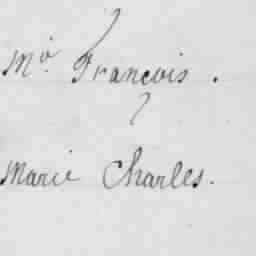 Mo. François.
Marie Charles.